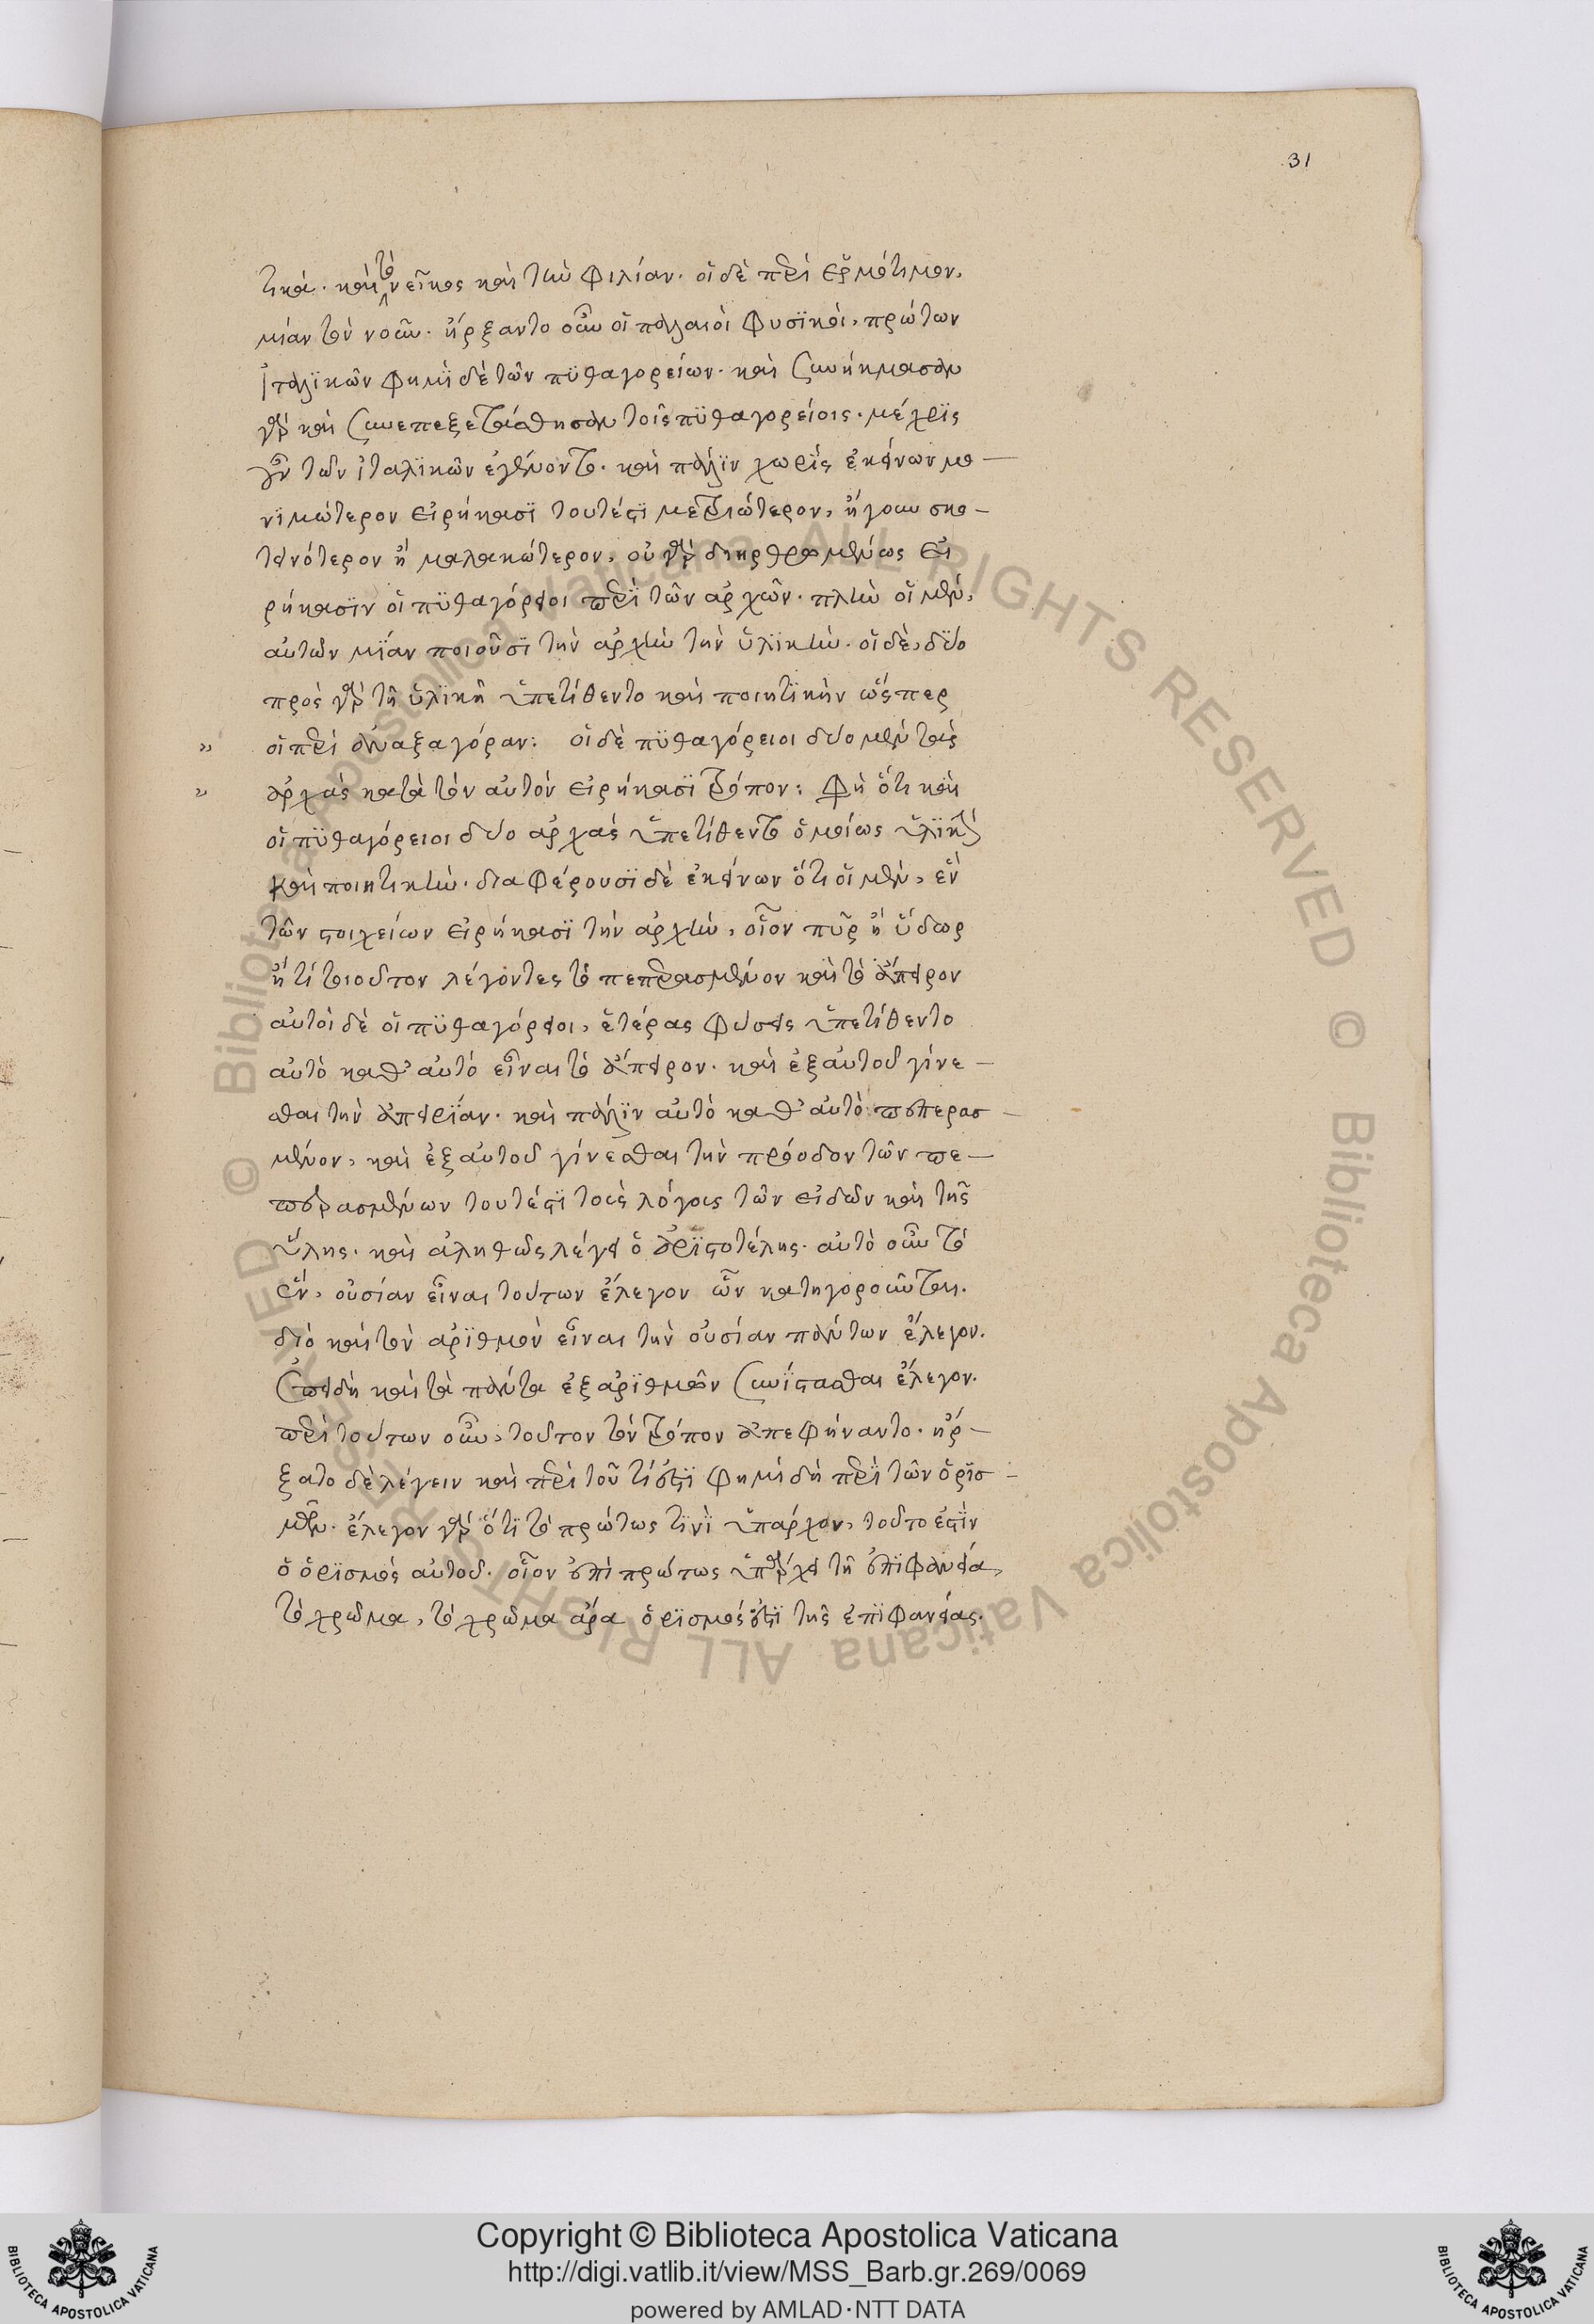 31
τικά. καὶ τὸ νεῖκος καὶ τὴν φιλίαν. οἱ δὲ περὶ ἑρμότιμον,
μίαν τὸν νοῦν. ἤρξαντο οὖν οἱ παλαιοὶ φυσϊκοὶ, πρώτων
ἰταλϊκῶν φημῒ δὲ τῶν πϋθαγορείων. καὶ συνήκμασαν
γὰρ καὶ συνεπεξετάσθησαν τοῖς πϋθαγορείοις. μέχρϊς
γοῦν τῶν ἰταλϊκῶν ἐγένοντο. καὶ πάλϊν χωρὶς ἐκείνων μο-
νϊμώτερον εἰρήκασϊ τουτέστϊ μετριώτερον, ἤγουν σκο-
τεινότερον ἢ μαλακώτερον, οὐ γὰρ διηρθρωμένως εἰ
ρήκασϊν οἱ πϋθαγόρειοι περῒ τῶν ἀρχῶν. πλὴν οἱ μὲν,
αὐτῶν μϊάν ποιοῦσϊ τὴν ἀρχὴν τὴν ὑλϊκὴν. οἱ δὲ, δύο
πρὸς γὰρ τῇ ὑλϊκῇ ὑπετίθεντο καὶ ποιητϊκὴν ὥσπερ
" οἱ περὶ ἀναξαγόραν: οἱ δὲ πϋθαγόρειοι δύο μὲν τὰς
" ἀρχὰς κατὰ τὸν αὐτὸν εἰρήκασϊ τρόπον: φὴ ὅτι καὶ
οἱ πϋθαγόρειοι δύο ἀρχὰς ὑπετίθεντο ὁμοίως ὑλϊκὴν
καὶ ποιητικὴν. διαφέρουσϊ δὲ ἐκείνων ὅτι οἱ μὲν, ἓν
τῶν στοιχείων εἰρήκασϊ τὴν ἀρχὴν, οἷον πῦρ ἢ ὕδωρ
ἤ τί τοιοῦτον λέγοντες τὸ πεπερασμένον καὶ τὸ ἄπειρον
αὐτοὶ δὲ οἱ πϋθαγόρειοι, ἑτέρας φύσεις ὑπετίθεντο
αὐτὸ καθ' αὐτό εἶναι τὸ ἄπειρον. καὶ ἐξ αὐτοῦ γίνε-
σθαι τὴν ἀπειρίαν. καὶ πάλϊν αὐτὸ καθ' αὐτὸ πεπερασ-
μένον, καὶ ἐξ αὐτοῦ γίνεσθαι τὴν πρόοδον τῶν πε-
περασμένων τουτέστϊ τοῖς λόγοις τῶν εἰδῶν καὶ τῆς
ὕλης. καὶ ἀληθῶς λέγει ὁ ἀρϊστοτέλης. αὐτὸ οὖν τὸ
ἓν, οὐσίαν εἶναι τούτων ἔλεγον ὧν κατηγοροῦνται.
διὸ καὶ τὸν ἀρϊθμὸν εἶναι τὴν οὐσίαν πάντων ἔλεγον.
ἐπειδὴ καὶ τὰ πάντα ἐξ ἀρϊθμῶν συνΐστασθαι ἔλεγον.
περὶ τούτων οὖν, τοῦτον τὸν τρόπον ἀπεφήναντο. ἤρ-
ξατο δὲ λέγειν καὶ περὶ τοῦ τί ἐστϊ φημὶ δὴ περῒ τῶν ὁρϊσ-
μῶν. ἔλεγον γὰρ ὅτϊ τὸ πρώτως τϊνῒ ὑπάρχον, τοῦτο ἐστῒν
ὁ ὁρϊσμὸς αὐτοῦ. οἷον ἐπὶ πρώτως ὑπάρχει τῇ ἐπϊφανεία,
τὸ χρῶμα, τὸ χρῶμα ἄρα ὁρϊσμός ἐστϊ τῆς ἐπϊφανείας.
Copyright © Biblioteca Apostolica Vaticana
http://digi.vatlib.it/view/MSS_Barb.gr.269/0069
powered by AMLAD·NTT DATA